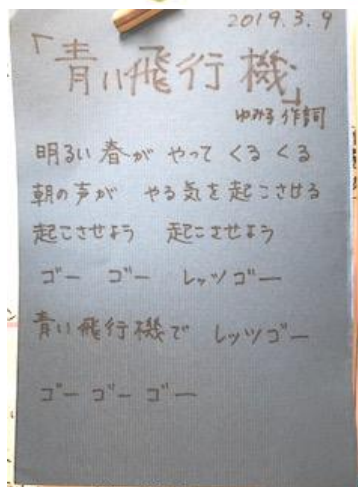 2019.3.9
「青い飛行機」
ゆみる 作詞
明るい春が やって くる くる
朝の声が やる気を起こさせる
起こさせよう 起こさせよう
ゴー ゴー レッツゴー
青い飛行機で レッツゴー
ゴー ゴー ゴー